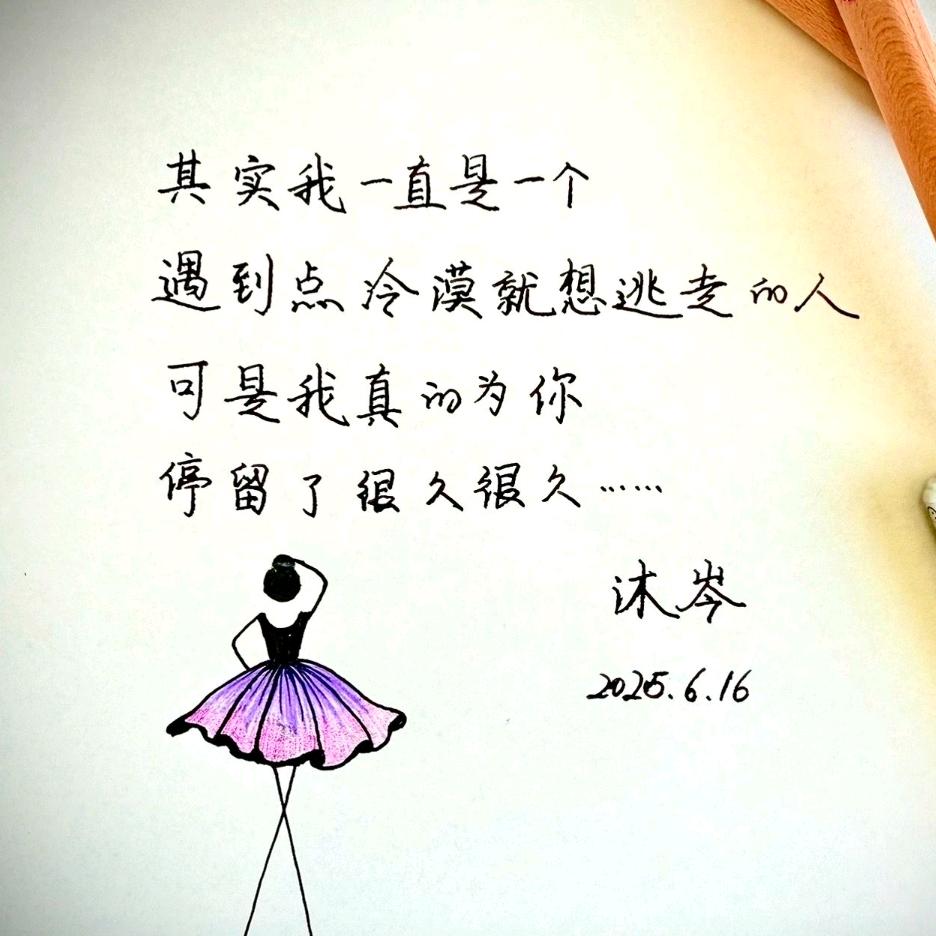 其实我一直是一个
遇到点冷漠就想逃走的人
可是我真的为你
停留了很久很久……
沐岑
2025.6.16